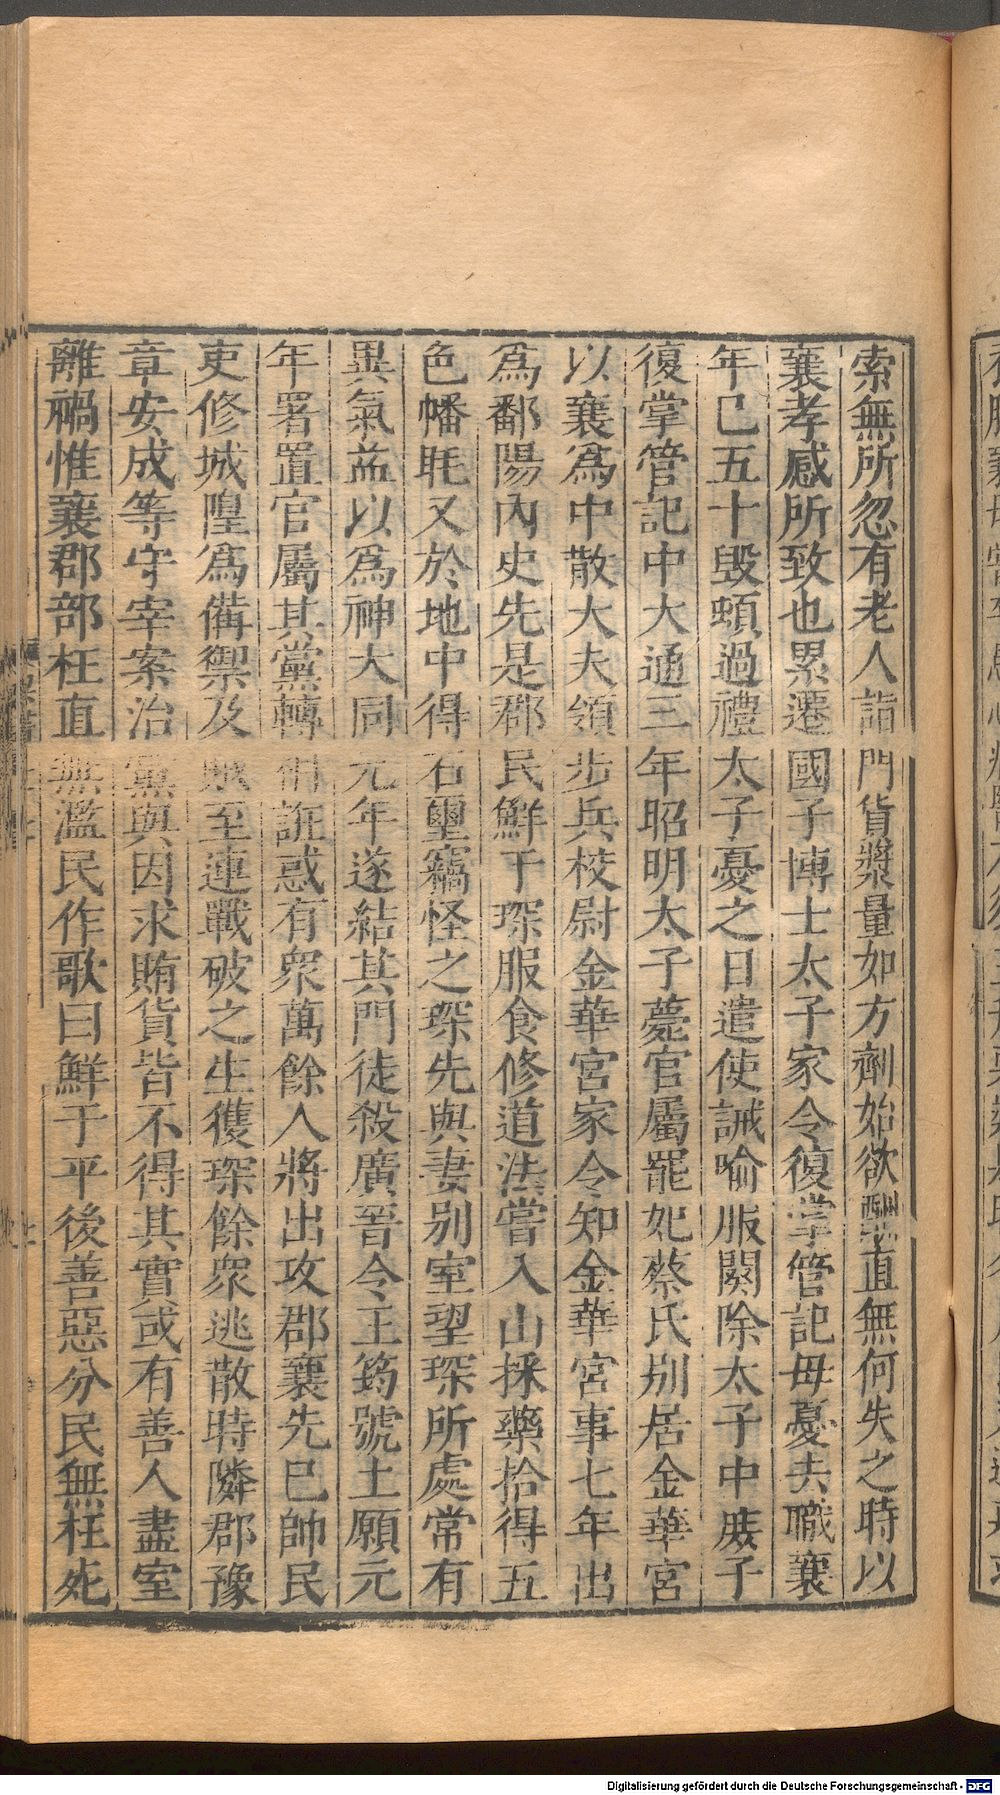 索無所忽有老人詣門貨漿量如方劑始欲酬直無何失之時以
襄孝感所致也累遷國子博士太子家令復掌管記母憂去職襄
年已五十毀頓過禮太子憂之日遣使誡喻服闋除太子中庶子
復掌管記中大通三年昭明太子薨官屬罷妃蔡氏别居金華宮
以襄爲中散大夫領步兵校尉金華宮家令知金華宮事七年出
爲鄱陽內史先是郡民鮮于琛服食修道法嘗入山採藥拾得五
色幡眊又於地中得石璽竊怪之琛先與妻别室望琛所處常有
異氣益以爲神大同元年遂結其門徒殺廣晉令王筠號上願元
年署置官屬其黨轉相誑惑有眾萬餘人將出攻郡襄先已帥民
吏修城隍爲備禦及賊至連戰破之生獲琛餘眾逃散時隣郡豫
章安成等守宰案治黨與因求賄貨皆不得其實或有善人盡室
離禍惟襄郡部枉直無濫民作歌曰鮮于平後善惡分民無枉死
Digitalisierung gefördert durch die Deutsche Forschungsgemeinschaft - DFG